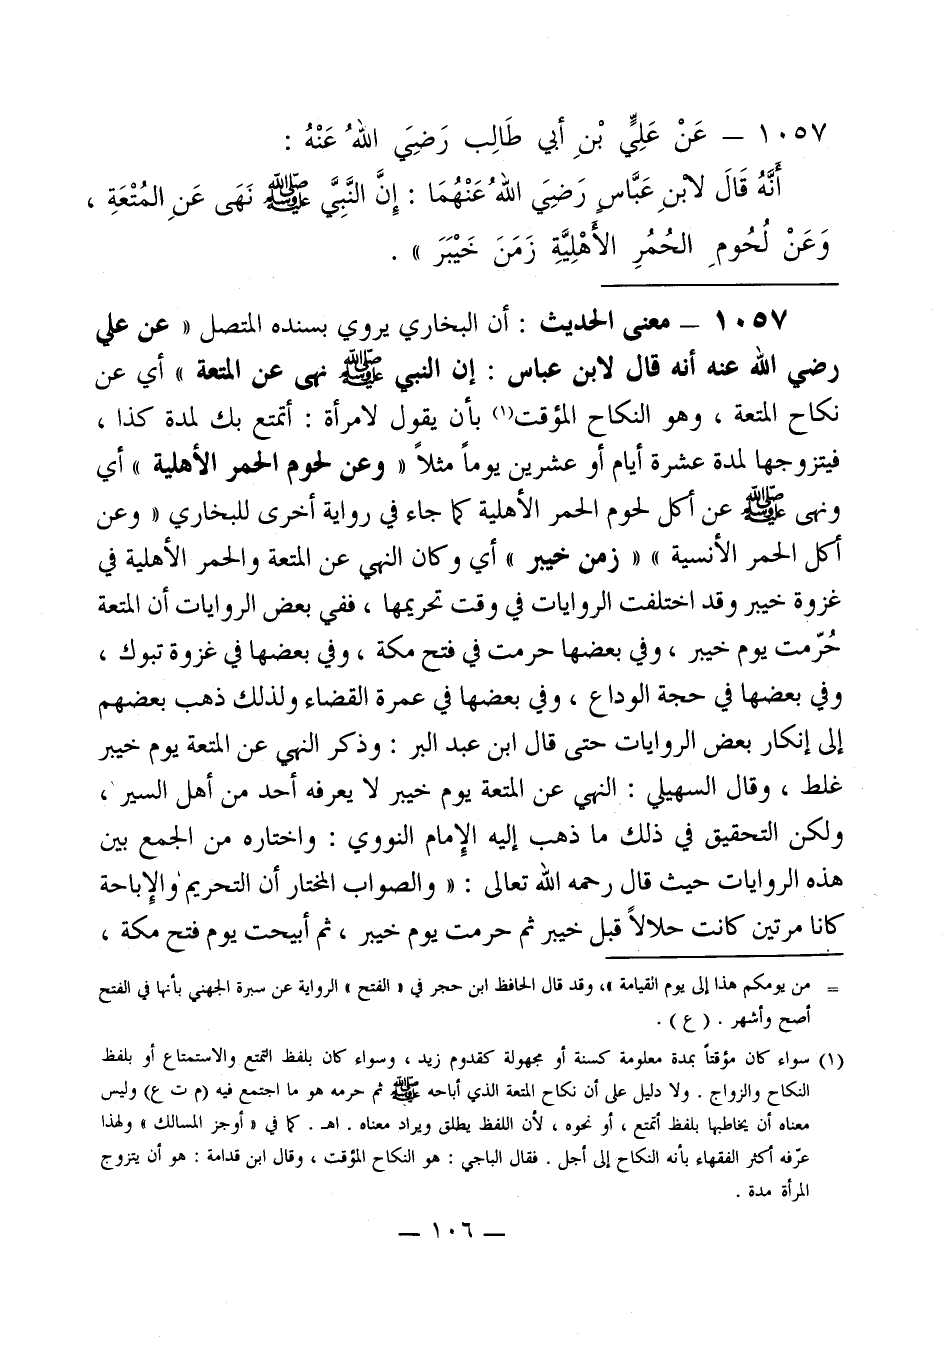 ١٠٥٧ ـ عَنْ عَلِيٍّ بْنِ أَبي طَالِب رَضِيَ اللهُ عَنْهُ :
أَنَّهُ قَالَ لابنِ عَبَّاسٍ رَضِيَ اللهُ عَنْهُمَا : إِنَّ النَّبِيَّ ﷺ نَهَى عَنِ المُتْعَةِ ،
وَعَنْ لُحُومِ الحُمُرِ الأَهْلِيَّةِ زَمَنَ خَيْبَرَ » .
١٠٥٧ ـ معنى الحديث : أن البخاري يروي بسنده المتصل « عن علي
رضي الله عنه أنه قال لابن عباس : إن النبي ﷺ نهى عن المتعة » أي عن
نكاح المتعة ، وهو النكاح المؤقت(١) بأن يقول لامرأة : أتمتع بك لمدة كذا ،
فيتزوجها لمدة عشرة أيام أو عشرين يوماً مثلاً « وعن لحوم الحمر الأهلية » أي
ونهى ﷺ عن أكل لحوم الحمر الأهلية كما جاء في رواية أخرى للبخاري « وعن
أكل الحمر الأنسية » « زمن خيبر » أي وكان النهي عن المتعة والحمر الأهلية في
غزوة خيبر وقد اختلفت الروايات في وقت تحريمها ، ففي بعض الروايات أن المتعة
حُرّمت يوم خيبر ، وفي بعضها حرمت في فتح مكة ، وفي بعضها في غزوة تبوك ،
وفي بعضها في حجة الوداع ، وفي بعضها في عمرة القضاء ولذلك ذهب بعضهم
إلى إنكار بعض الروايات حتى قال ابن عبد البر : وذكر النهي عن المتعة يوم خيبر
غلط ، وقال السهيلي : النهي عن المتعة يوم خيبر لا يعرفه أحد من أهل السير ،
ولكن التحقيق في ذلك ما ذهب إليه الإمام النووي : واختاره من الجمع بين
هذه الروايات حيث قال رحمه الله تعالى : « والصواب المختار أن التحريم والإباحة
كانا مرتين كانت حلالاً قبل خيبر ثم حرمت يوم خيبر ، ثم أبيحت يوم فتح مكة ،
= من يومكم هذا إلى يوم القيامة »، وقد قال الحافظ ابن حجر في « الفتح » الرواية عن سبرة الجهني بأنها في الفتح
أصح وأشهر . ( ع ) .
(١) سواء كان مؤقتاً بمدة معلومة كسنة أو مجهولة كقدوم زيد ، وسواء كان بلفظ التمتع والاستمتاع أو بلفظ
النكاح والزواج . ولا دليل على أن نكاح المتعة الذي أباحه ﷺ ثم حرمه هو ما اجتمع فيه (م ت ع) وليس
معناه أن يخاطبها بلفظ أتمتع ، أو نحوه ، لأن اللفظ يطلق ويراد معناه . اهـ . كما في « أوجز المسالك » ولهذا
عرّفه أكثر الفقهاء بأنه النكاح إلى أجل . فقال الباجي : هو النكاح المؤقت ، وقال ابن قدامة : هو أن يتزوج
المرأة مدة .
ـ ١٠٦ ـ